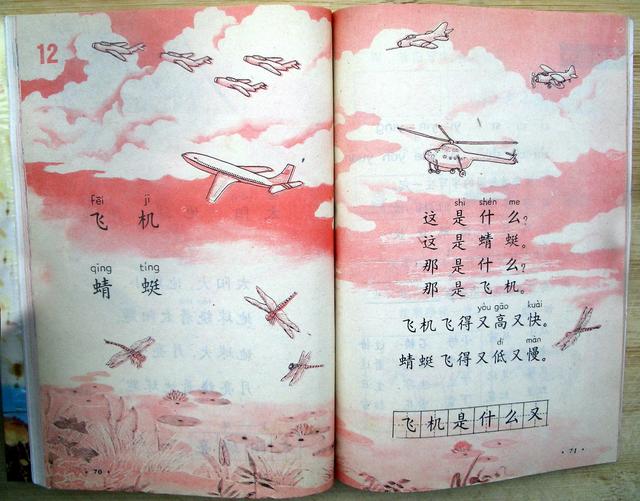 12
fēi jī
飞 机
qīng tíng
蜻 蜓
· 70 ·
shì shén me
这 是 什 么？
这 是 蜻 蜓。
那 是 什 么？
那 是 飞 机。
yòu gāo kuài
飞机飞得又高又快。
dī màn
蜻蜓飞得又低又慢。
飞 机 是 什 么 又
· 71 ·